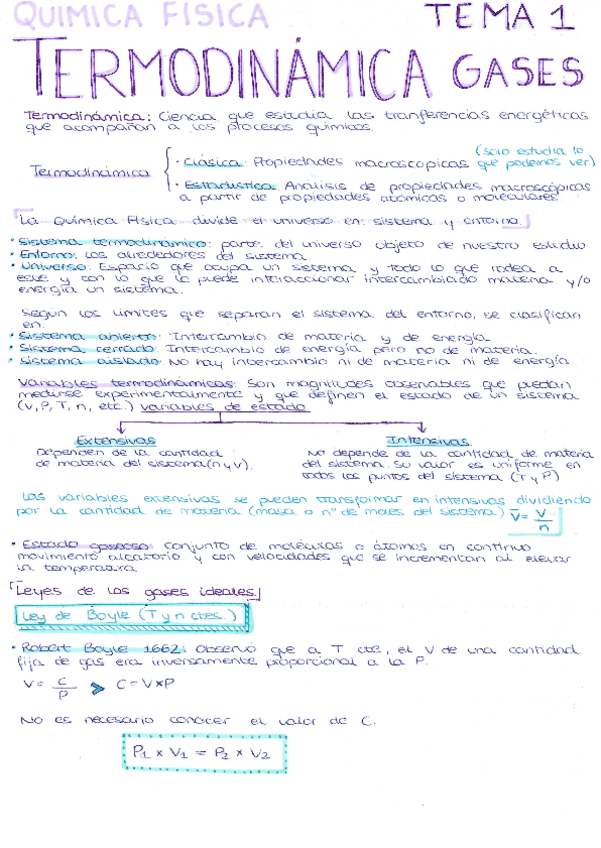 QUIMICA FISICA TEMA 1
TERMODINÁMICA GASES
Termodinámica: Ciencia que estudia las tranferencias energéticas
que acompañan a los procesos químicos.
Termodinámica
· Clásica: Propiedades macroscópicas (solo estudia lo que podemos ver)
· Estadística: Análisis de propiedades macroscópicas
a partir de propiedades atómicas o moleculares
La Química Física divide el universo en: sistema y entorno.
· Sistema termodinámico: parte del universo objeto de nuestro estudio
· Entorno: los alrededores del sistema.
· Universo: Espacio que ocupa un sistema y todo lo que rodea a
este y con lo que le puede interaccionar intercambiado materia y/o
energía un sistema.
Según los límites que separan el sistema del entorno, se clasifican
en:
· Sistema abierto: Intercambio de materia y de energía
· Sistema cerrado: Intercambio de energía pero no de materia.
· Sistema aislado: No hay intercambio ni de materia ni de energía
Variables termodinámicas: Son magnitudes observables que puedan
medirse experimentalmente y que definen el estado de un sistema
(V, P, T, n, etc.) variables de estado
Extensivas Intensivas
Dependen de la cantidad
de materia del sistema (n y V).
No depende de la cantidad de materia
del sistema. Su valor es uniforme en
todos los puntos del sistema (T y P)
Las variables extensivas se pueden transformar en intensivas dividiendo
por la cantidad de materia (masa o nº de moles del sistema) V̄ = V/n
· Estado gaseoso: Conjunto de moléculas o átomos en continuo
movimiento aleatorio y con velocidades que se incrementan al elevar
la temperatura
Leyes de los gases ideales.
Ley de Boyle (T y n ctes.)
· Robert Boyle 1662: Observó que a T cte, el V de una cantidad
fija de gas era inversamente proporcional a la P.
V = C/P > C = V×P
No es necesario conocer el valor de C.
P1 × V1 = P2 × V2